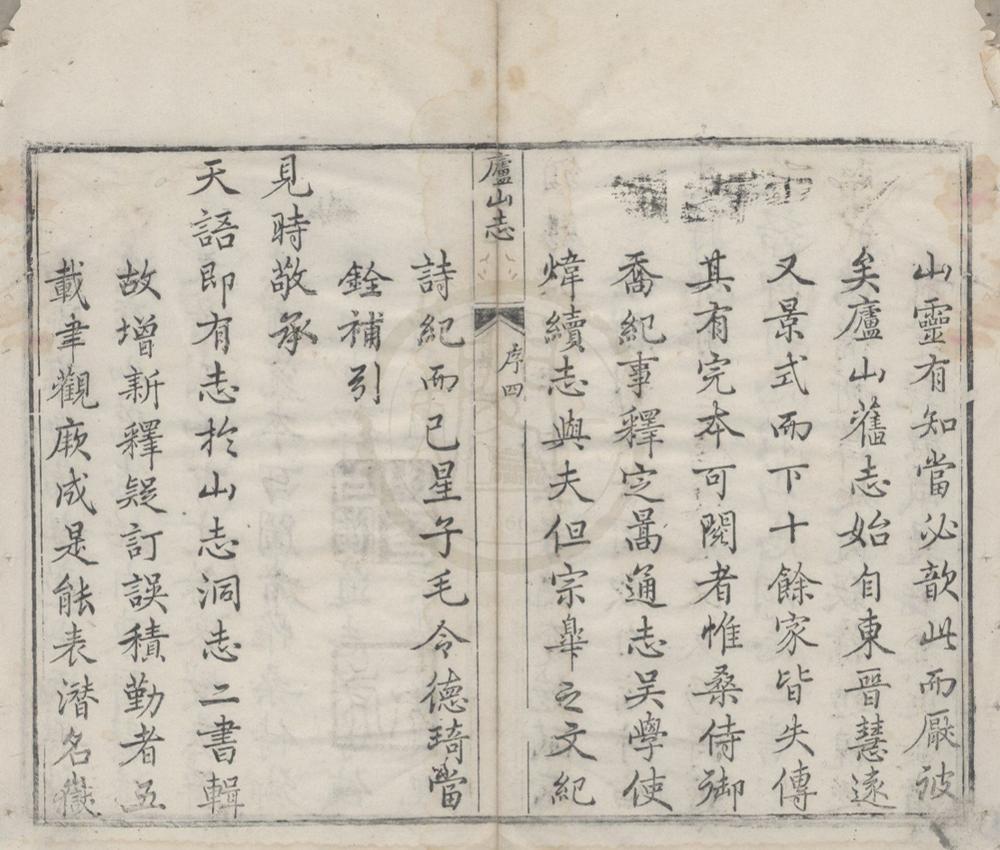 山靈有知當必歆此而厭彼
矣廬山舊志始自東晉慧遠
又景式而下十餘家皆失傳
其有完本可閱者惟桑侍御
喬紀事釋定暠通志吳學使
煒續志與夫但宗臯之文紀
廬山志
序四
詩紀而已星子毛令德琦當
銓補引
見時敬承
天語即有志於山志洞志二書輯
故增新釋疑訂誤積勤者五
載聿觀厥成是能表潛名嶽